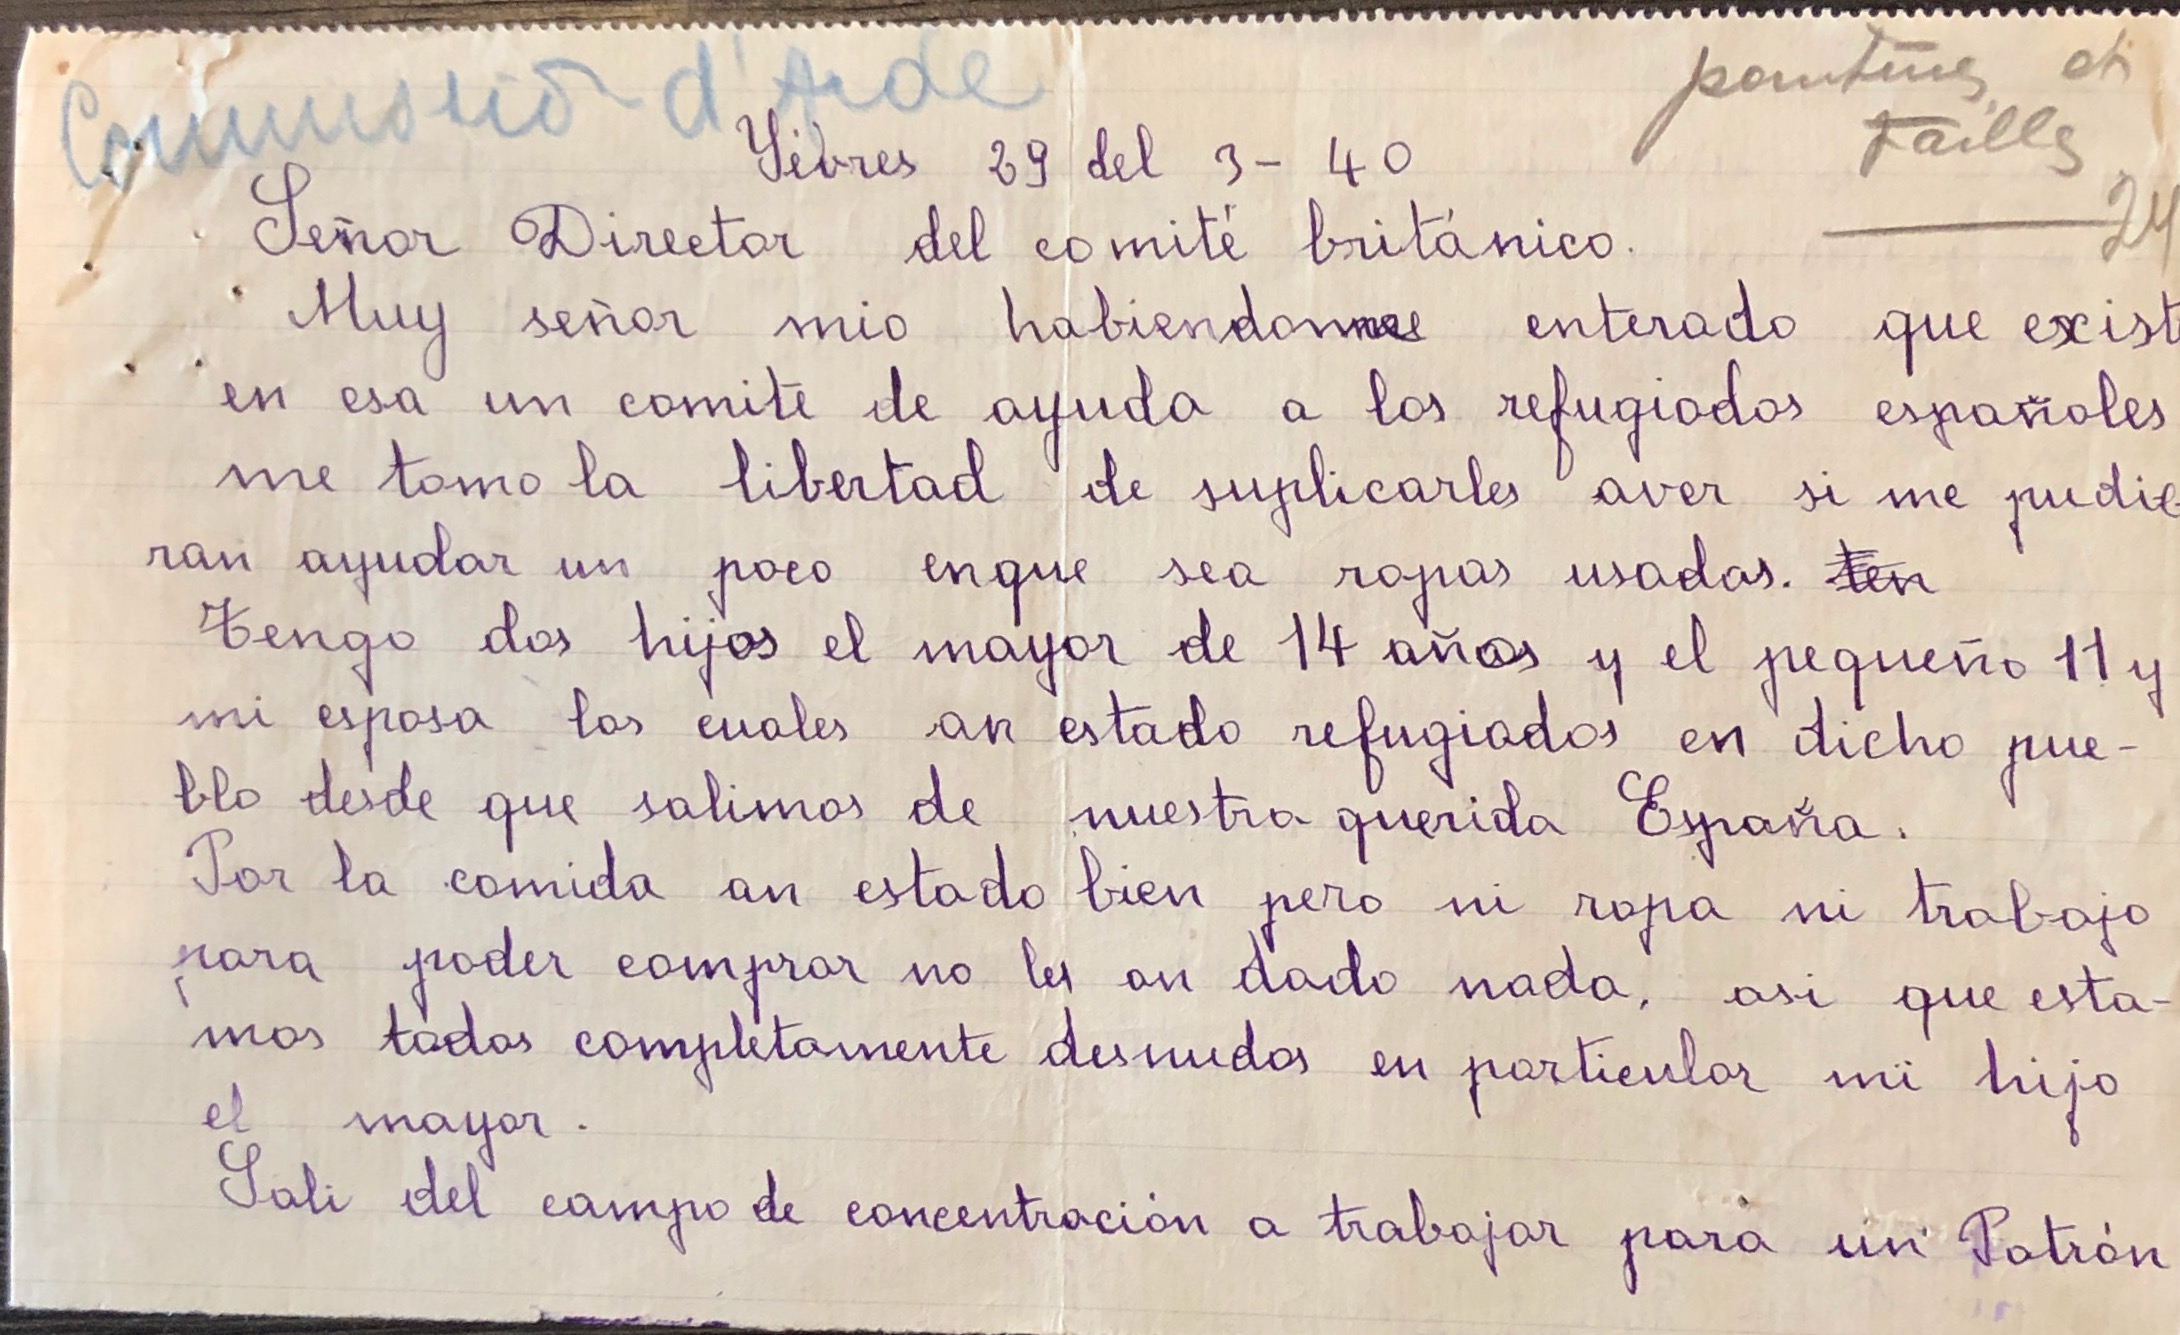 Commissiō d'Aide
pointures et
taille
24
Yèvres 29 del 3-40
Señor Director del comité británico.
Muy señor mio habiendome enterado que exist
en esa un comite de ayuda a los refugiados españoles
me tomo la libertad de suplicarles aver si me pudie
ran ayudar un poco enque sea ropas usadas. ten
Tengo dos hijos el mayor de 14 años y el pequeño 11 y
mi esposa los cuales an estado refugiados en dicho pue-
blo desde que salimos de nuestra querida España.
Por la comida an estado bien pero ni ropa ni trabajo
para poder comprar no les an dado nada, asi que esta-
mos todos completamente desnudos en particular mi hijo
el mayor.
Sali del campo de concentración a trabajar para un Patrón